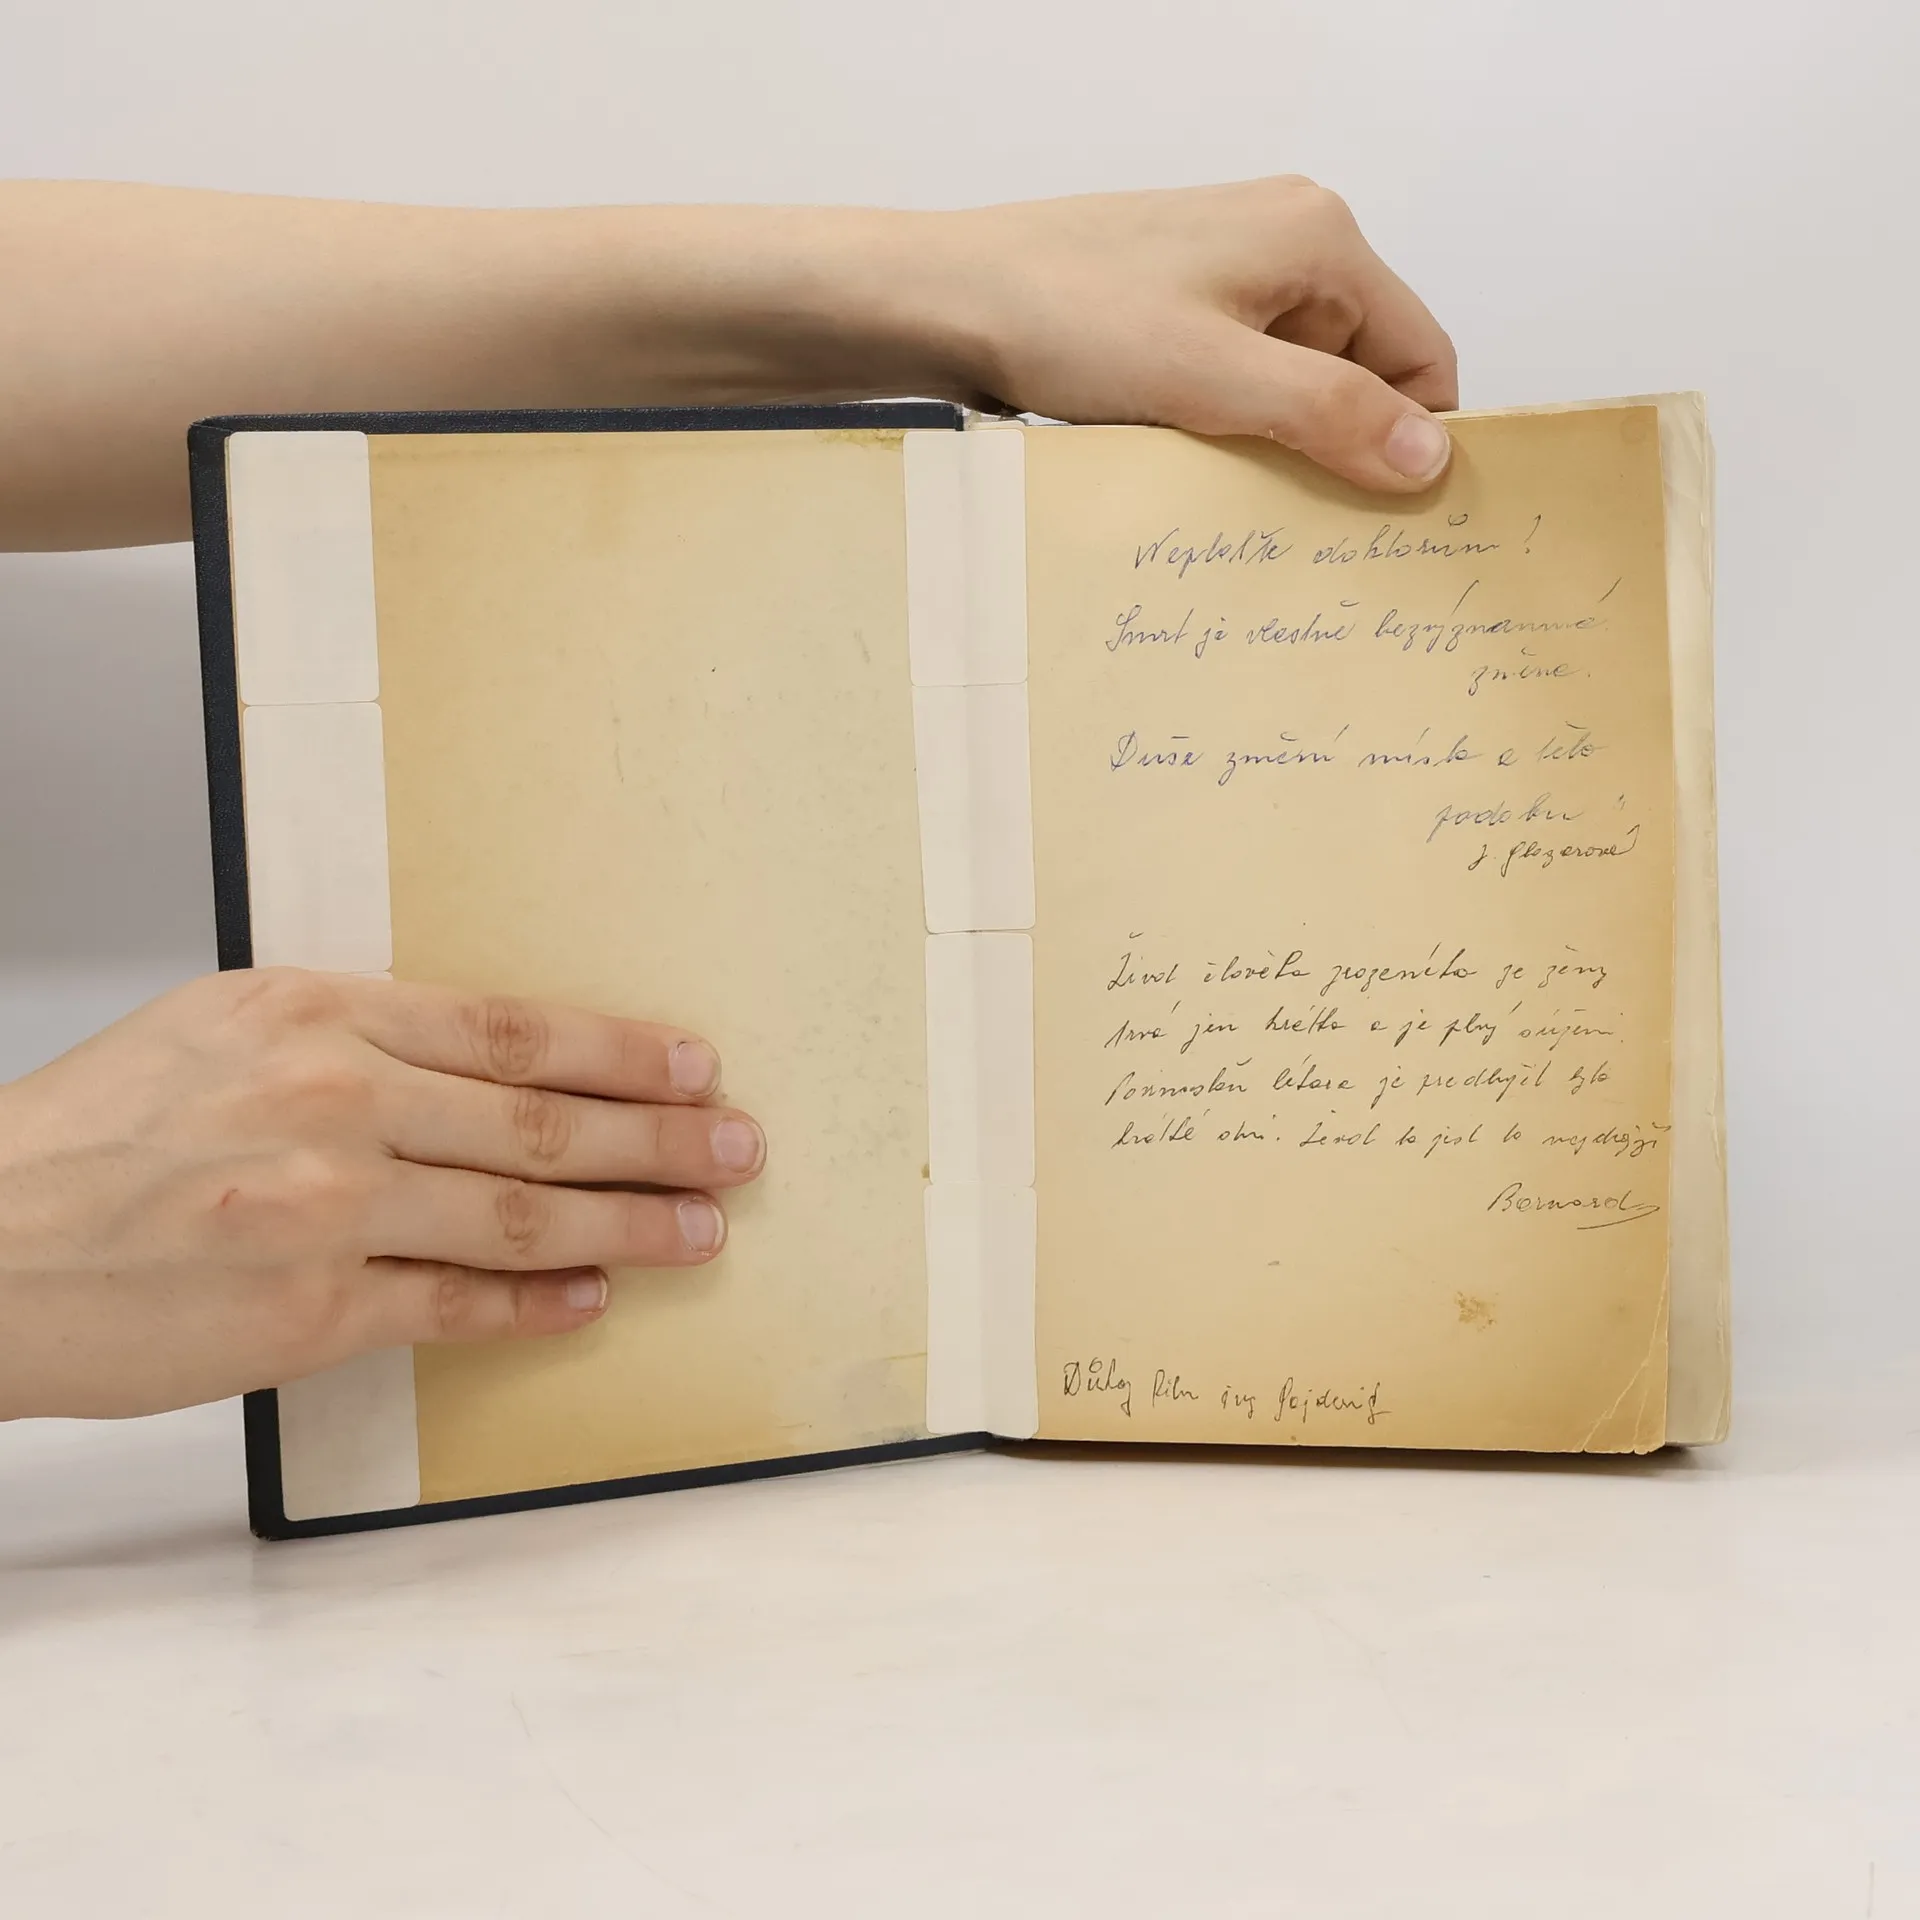 Neplaťte doktorům!
Smrt je vlastně bezvýznamná
změna.
Duše změní místo a tělo
podobu"
J. Glazarová
Život člověka zrozeného ze ženy
trvá jen krátko a je plný soužení.
lékara je předlužit tyto
krátké dni. Život to jest to nejdražší
Bernard
Důkaz